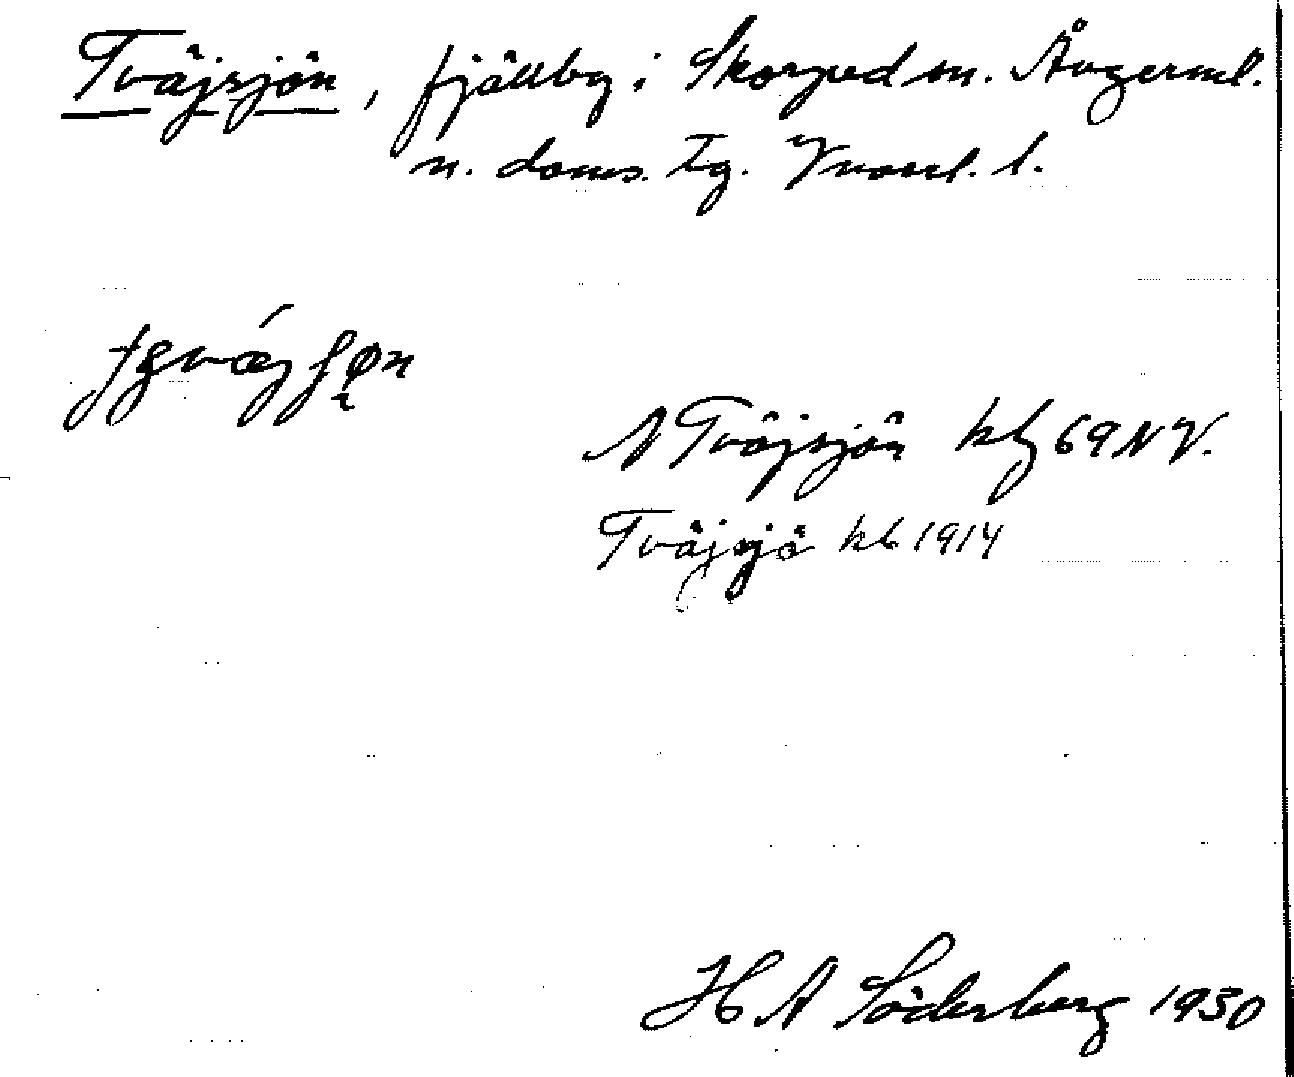 Tväjsjön, fjällby i Skorped sn. Ångerml.
n. doms. tg. Vnorrl. l.
N Tväjsjön kb 69 NV.
Tväjsjö kb 1914
H A Söderberg 1930